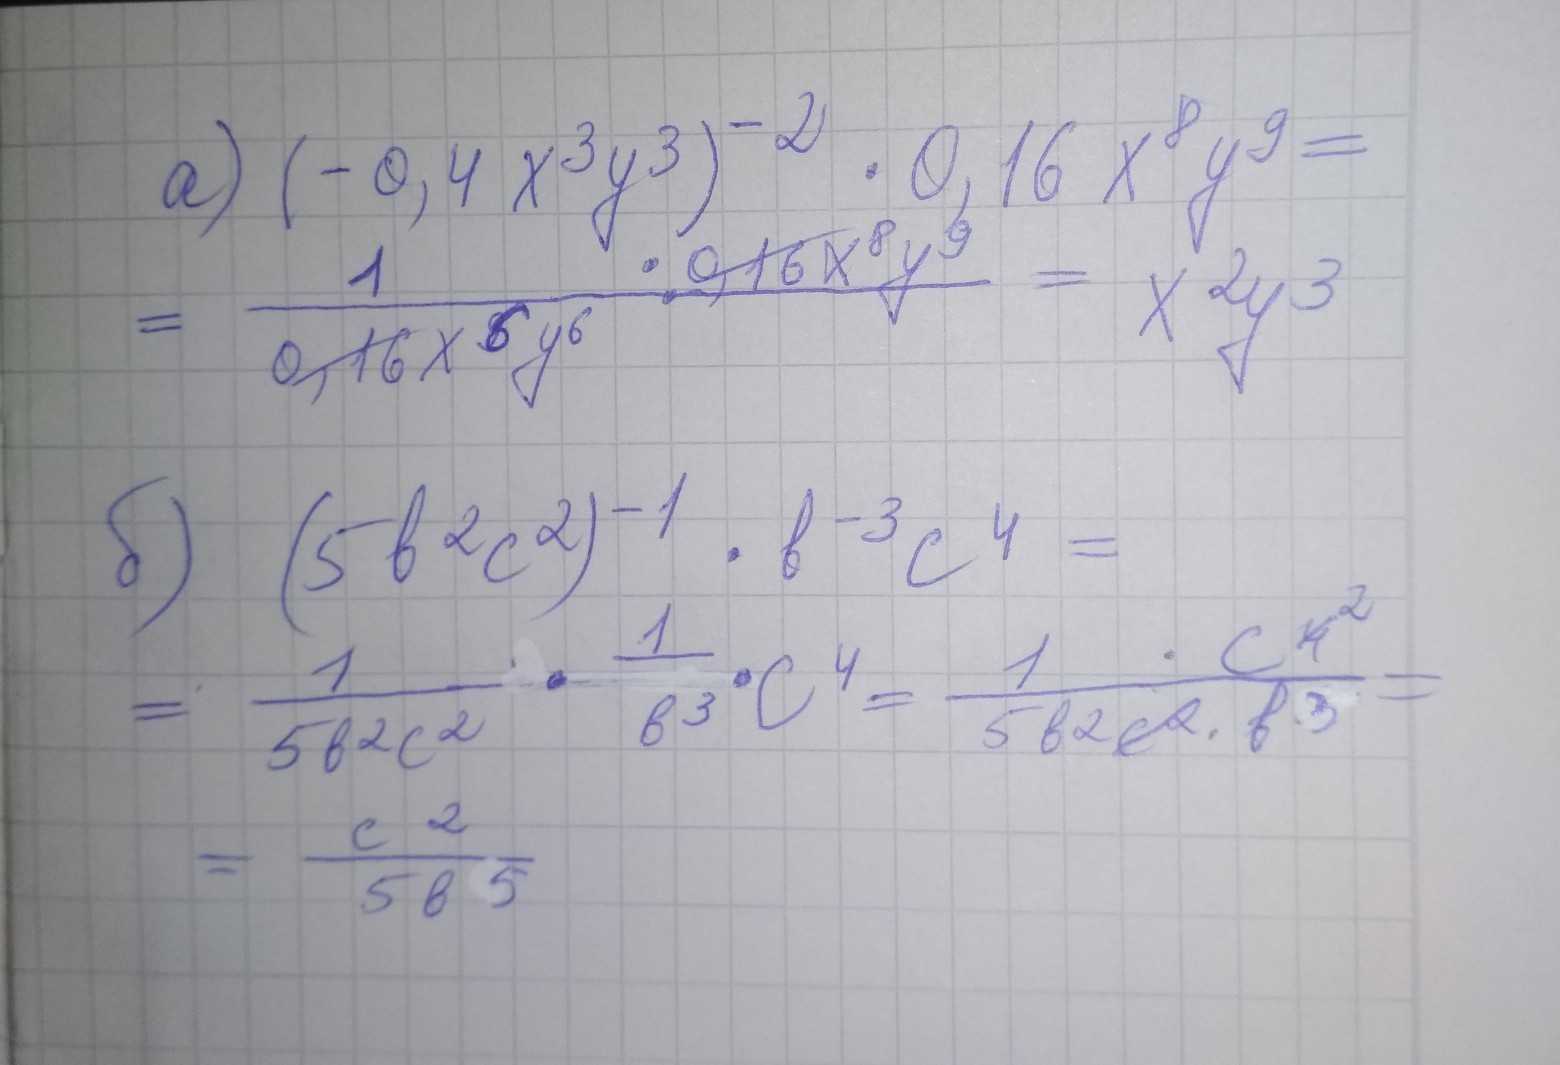 а) (-0,4x³y³)⁻² · 0,16x⁸y⁹ =
= 1 / 0,16x⁶y⁶ · 0,16x⁸y⁹ = x²y³
б) (5в²с²)⁻¹ · в⁻³с⁴ =
= 1 / 5в²с² · 1 / в³ · с⁴ = 1 · с⁴ ² / 5в²с² · в³ =
= с² / 5в⁵